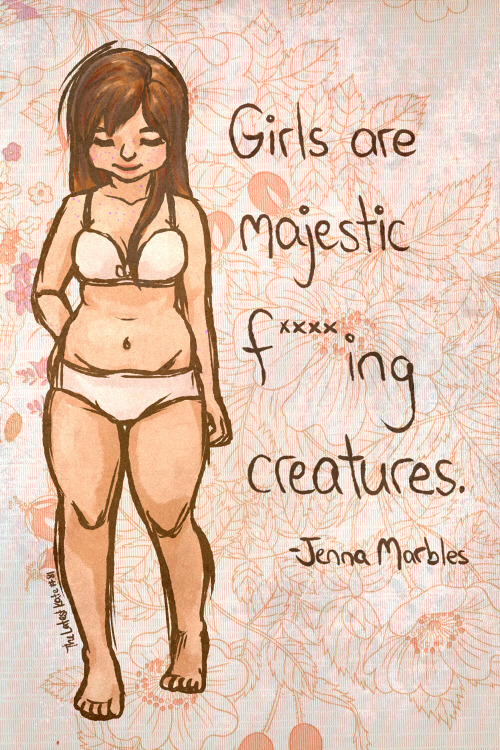 Girls are
majestic
fxxxxing
creatures.
-Jenna Marbles
-The Latest Kate #81